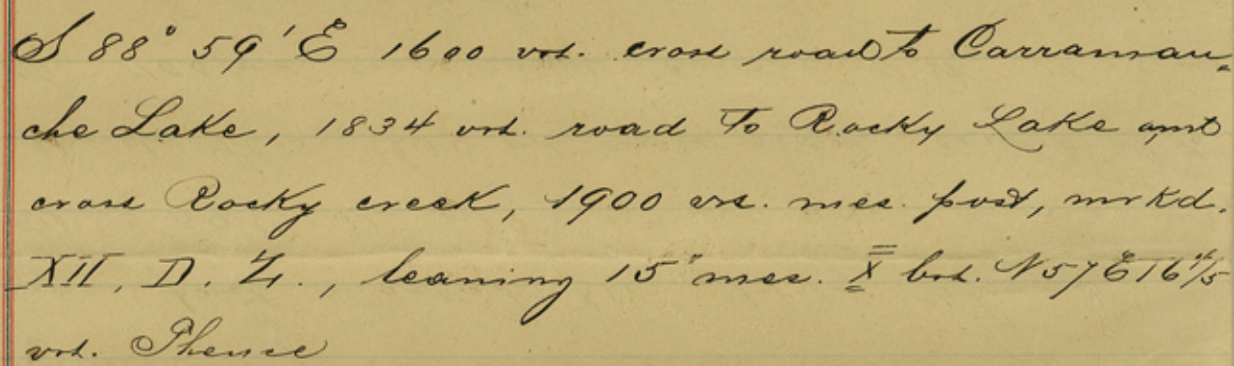 S 88° 59' E 1600 vrs. cross road to Carramau-
che Lake, 1834 vrs. road to Rocky Lake and
cross Rocky creek, 1900 vrs. mes. post, mrkd.
XII, D. Z., leaning 15" mes. X brs. N 57 E 16 4/5
vrs. Thence